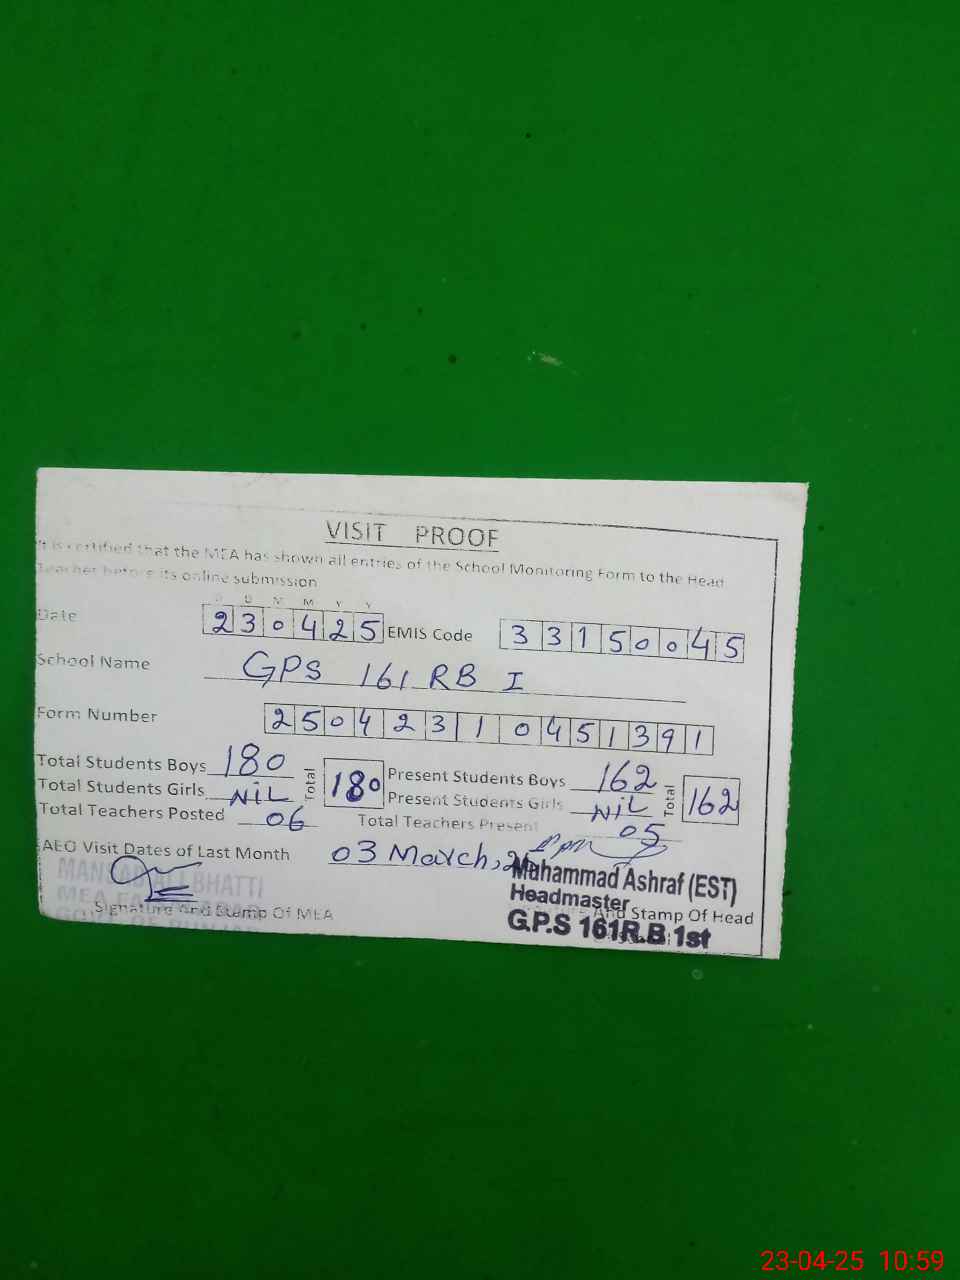 VISIT PROOF
It is certified that the MEA has shown all entries of the School Monitoring Form to the Head
Teacher before its online submission
D D M M Y Y
Date 230425 EMIS Code 33150045
School Name GPS 161 RB I
Form Number 25042310451391
Total Students Boys 180 Total 180 Present Students Boys 162 Total 162
Total Students Girls NiL Present Students Girls NiL
Total Teachers Posted 06 Total Teachers Present 05
AEO Visit Dates of Last Month 03 March,
MANSAB ALI BHATTI
MEA FAISALABAD
GOVT OF PUNJAB
Signature And Stamp Of MEA
Muhammad Ashraf (EST)
Headmaster
And Stamp Of Head
G.P.S 161R.B 1st
23-04-25 10:59